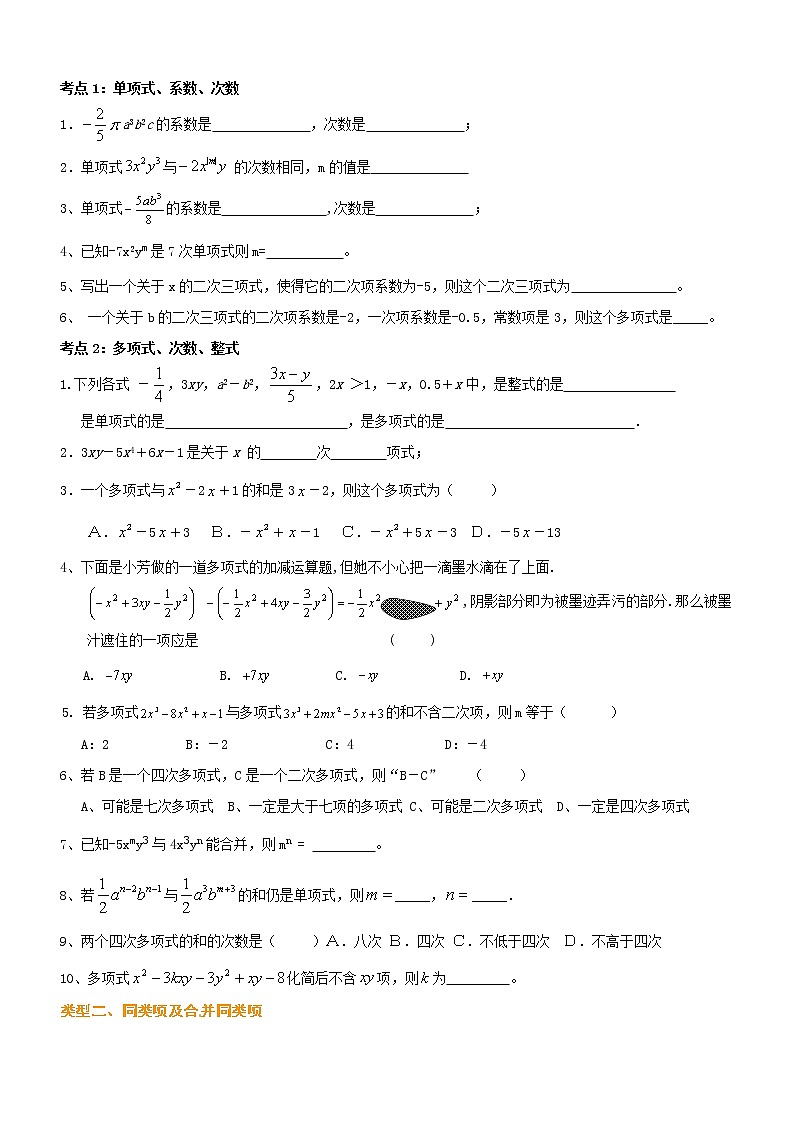 考点1:单项式、系数、次数
1.－2/5 πa³b²c的系数是______________,次数是______________;
2.单项式3x²y³与－2x^|m|y 的次数相同,m的值是______________
3、单项式－5ab³/8的系数是_______________,次数是______________;
4、已知-7x²yᵐ是7次单项式则m=___________。
5、写出一个关于x的二次三项式,使得它的二次项系数为-5,则这个二次三项式为_______________。
6、 一个关于b的二次三项式的二次项系数是-2,一次项系数是-0.5,常数项是3,则这个多项式是_____。
考点2:多项式、次数、整式
1.下列各式 －1/4,3xy,a²－b²,(3x－y)/5,2x ＞1,－x,0.5＋x中,是整式的是________________
是单项式的是__________________________,是多项式的是___________________________.
2.3xy－5x⁴＋6x－1是关于x 的________次________项式;
3.一个多项式与x²－2x＋1的和是3x－2,则这个多项式为( )
A.x²－5x＋3 B.－x²＋x－1 C.－x²＋5x－3 D.－5x－13
4、下面是小芳做的一道多项式的加减运算题,但她不小心把一滴墨水滴在了上面.
(－x²＋3xy－1/2y²)－(－1/2x²＋4xy－3/2y²)＝－1/2x² ＋y²,阴影部分即为被墨迹弄污的部分.那么被墨
汁遮住的一项应是 ( )
A. －7xy B. ＋7xy C. －xy D. ＋xy
5. 若多项式2x³－8x²＋x－1与多项式3x³＋2mx²－5x＋3的和不含二次项,则m等于( )
A:2 B:－2 C:4 D:－4
6、若B是一个四次多项式,C是一个二次多项式,则“B－C” ( )
A、可能是七次多项式 B、一定是大于七项的多项式 C、可能是二次多项式 D、一定是四次多项式
7、已知-5xᵐy³与4x³yⁿ能合并,则mⁿ = _________。
8、若1/2a^(n－2)b^(n－1)与1/2a³b^(m＋3)的和仍是单项式,则m＝_____,n＝_____.
9、两个四次多项式的和的次数是( )A.八次 B.四次 C.不低于四次 D.不高于四次
10、多项式x²－3kxy－3y²＋xy－8化简后不含xy项,则k为_________。
类型二、同类项及合并同类项